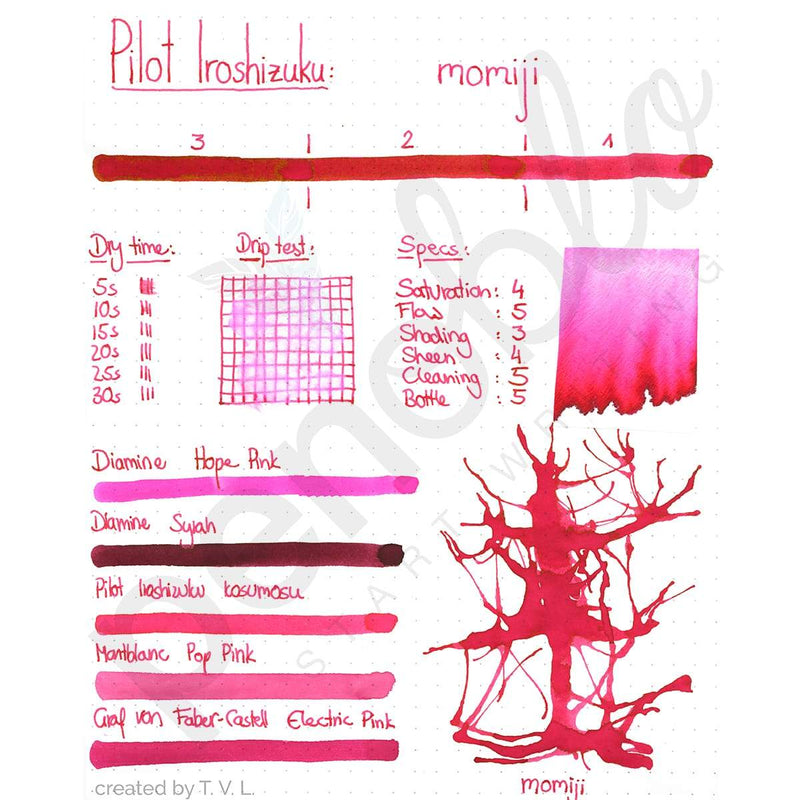 Pilot Iroshizuku: momiji
3 2 1
Dry time:
5s
10s
15s
20s
25s
30s
Drip test:
Specs:
Saturation: 4
Flow : 5
Shading : 3
Sheen : 4
Cleaning : 5
Bottle : 5
Diamine Hope Pink
Diamine Syrah
Pilot Iroshizuku kosumosu
Montblanc Pop Pink
Graf von Faber-Castell Electric Pink
momiji
penoblo
START WRITING
created by T. V. L.